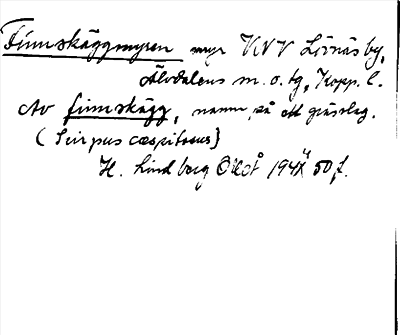 Finnskäggmyren myr VNV Lövnäs by,
Älvdalens m. o. tg, Kopp. l.
Av finnskägg, namn på ett grässlag.
(Scirpus cæspitosus)
H. Lindberg ÖDtå 194 50 f.